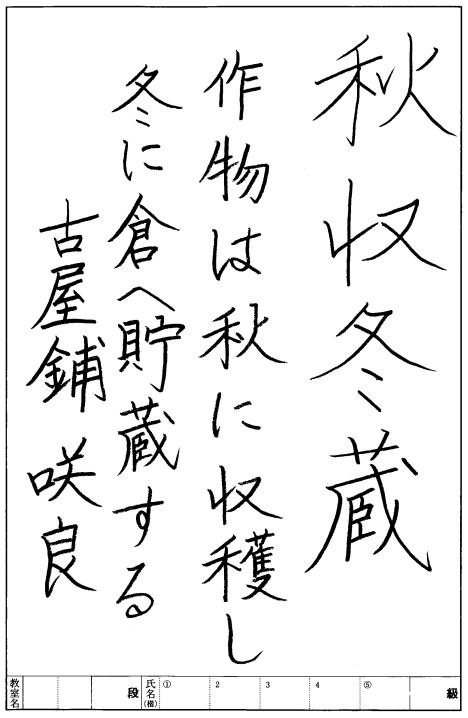 秋収冬蔵
作物は秋に収穫し
冬に倉へ貯蔵する
古屋鋪 咲良
級
⑤
4
3
2
①
氏名(楷)
段
教室名